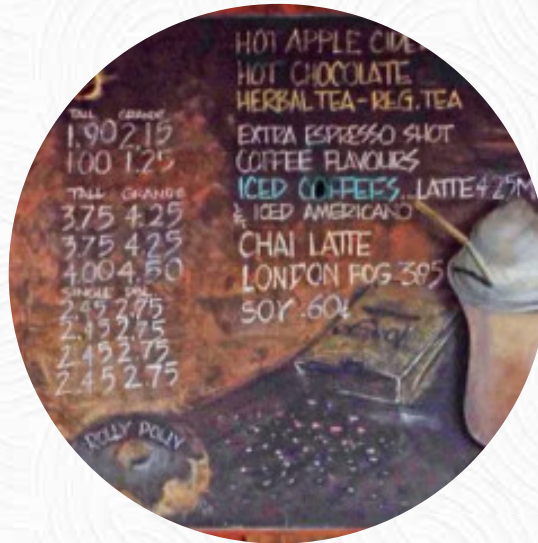 TALL GRANDE
1.90 2.15
1.00 1.25
TALL GRANDE
3.75 4.25
3.75 4.25
4.00 4.50
SINGLE DBL
2.45 2.75
2.45 2.75
2.45 2.75
2.45 2.75
ROLLY POLLY
HOT APPLE CIDE
HOT CHOCOLATE
HERBAL TEA - REG. TEA
EXTRA ESPRESSO SHOT
COFFEE FLAVOURS
ICED COFFEES... LATTE 4.25 M
& ICED AMERICANO
CHAI LATTE
LONDON FOG 3.95
SOY .60¢